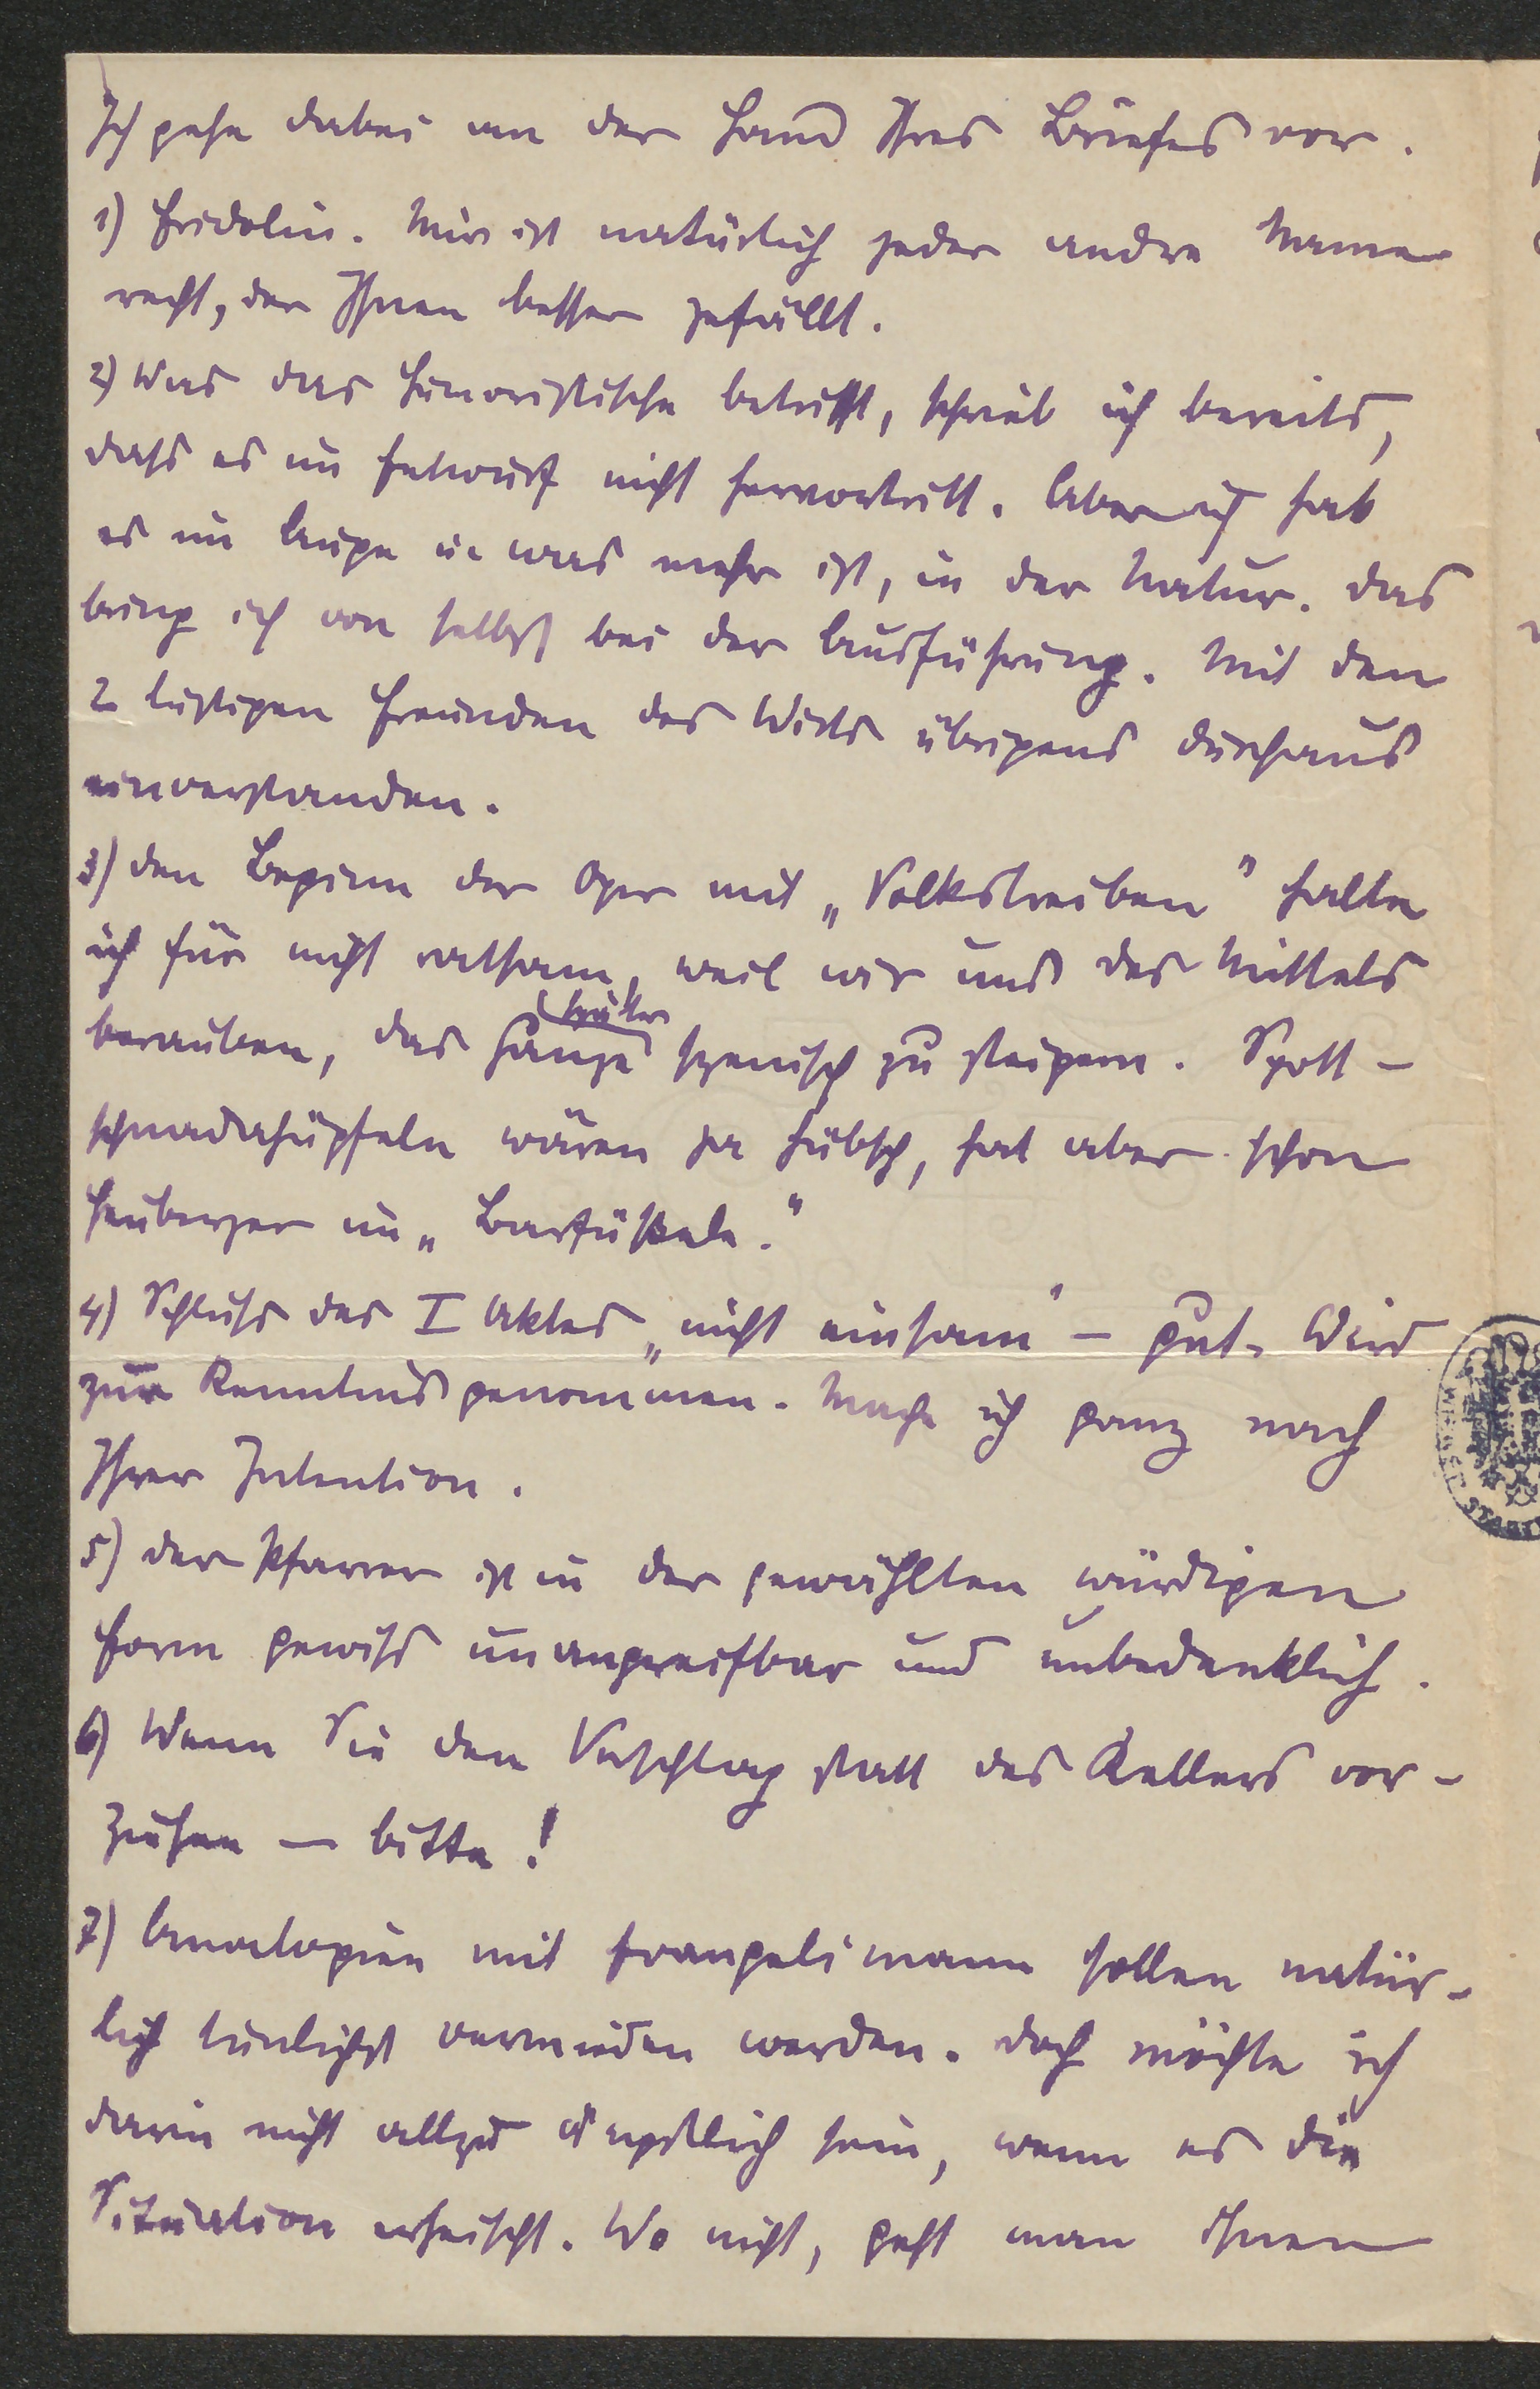 Ich gehe dabei an der Hand Ihres Briefes vor.
1) Fridolin. Mir ist natürlich jeder andre Name
recht, der Ihnen besser gefällt.
2) Was das Humoristische betrifft, schrieb ich bereits,
dass es im Entwurf nicht hervortritt. Aber ich hab
es im Auge u. was mehr ist, in der Natur. Das
bring ich von selbst bei der Ausführung. Mit den
2 lustigen Freunden des Wirts übrigens durchaus
einverstanden.
3) Den Beginn der Oper mit „Volkstreiben" halte
ich für nicht ratsam, weil wir uns des Mittels
berauben, das Ganze später szenisch zu steigern. Spott-
schnadahüpfeln wären ja hübsch, hat aber schon
Heuberger im „Barfüssele."
4) Schluss des I Aktes „nicht einsam" – gut. Wird
zur Kenntnis genommen. Mache ich ganz nach
Ihrer Intention.
5) Der Pfarrer ist in der gewählten würdigen
Form gewiss unangreifbar und unbedenklich.
6) Wenn Sie den Verschlag statt des Kellers vor-
ziehen – bitte!
7) Analogien mit Evangelimann sollen natür-
lich tunlichst vermieden werden. Doch möchte ich
darin nicht allzu ängstlich sein, wenn es die
Situation erheischt. Wo nicht, geht man ihnen